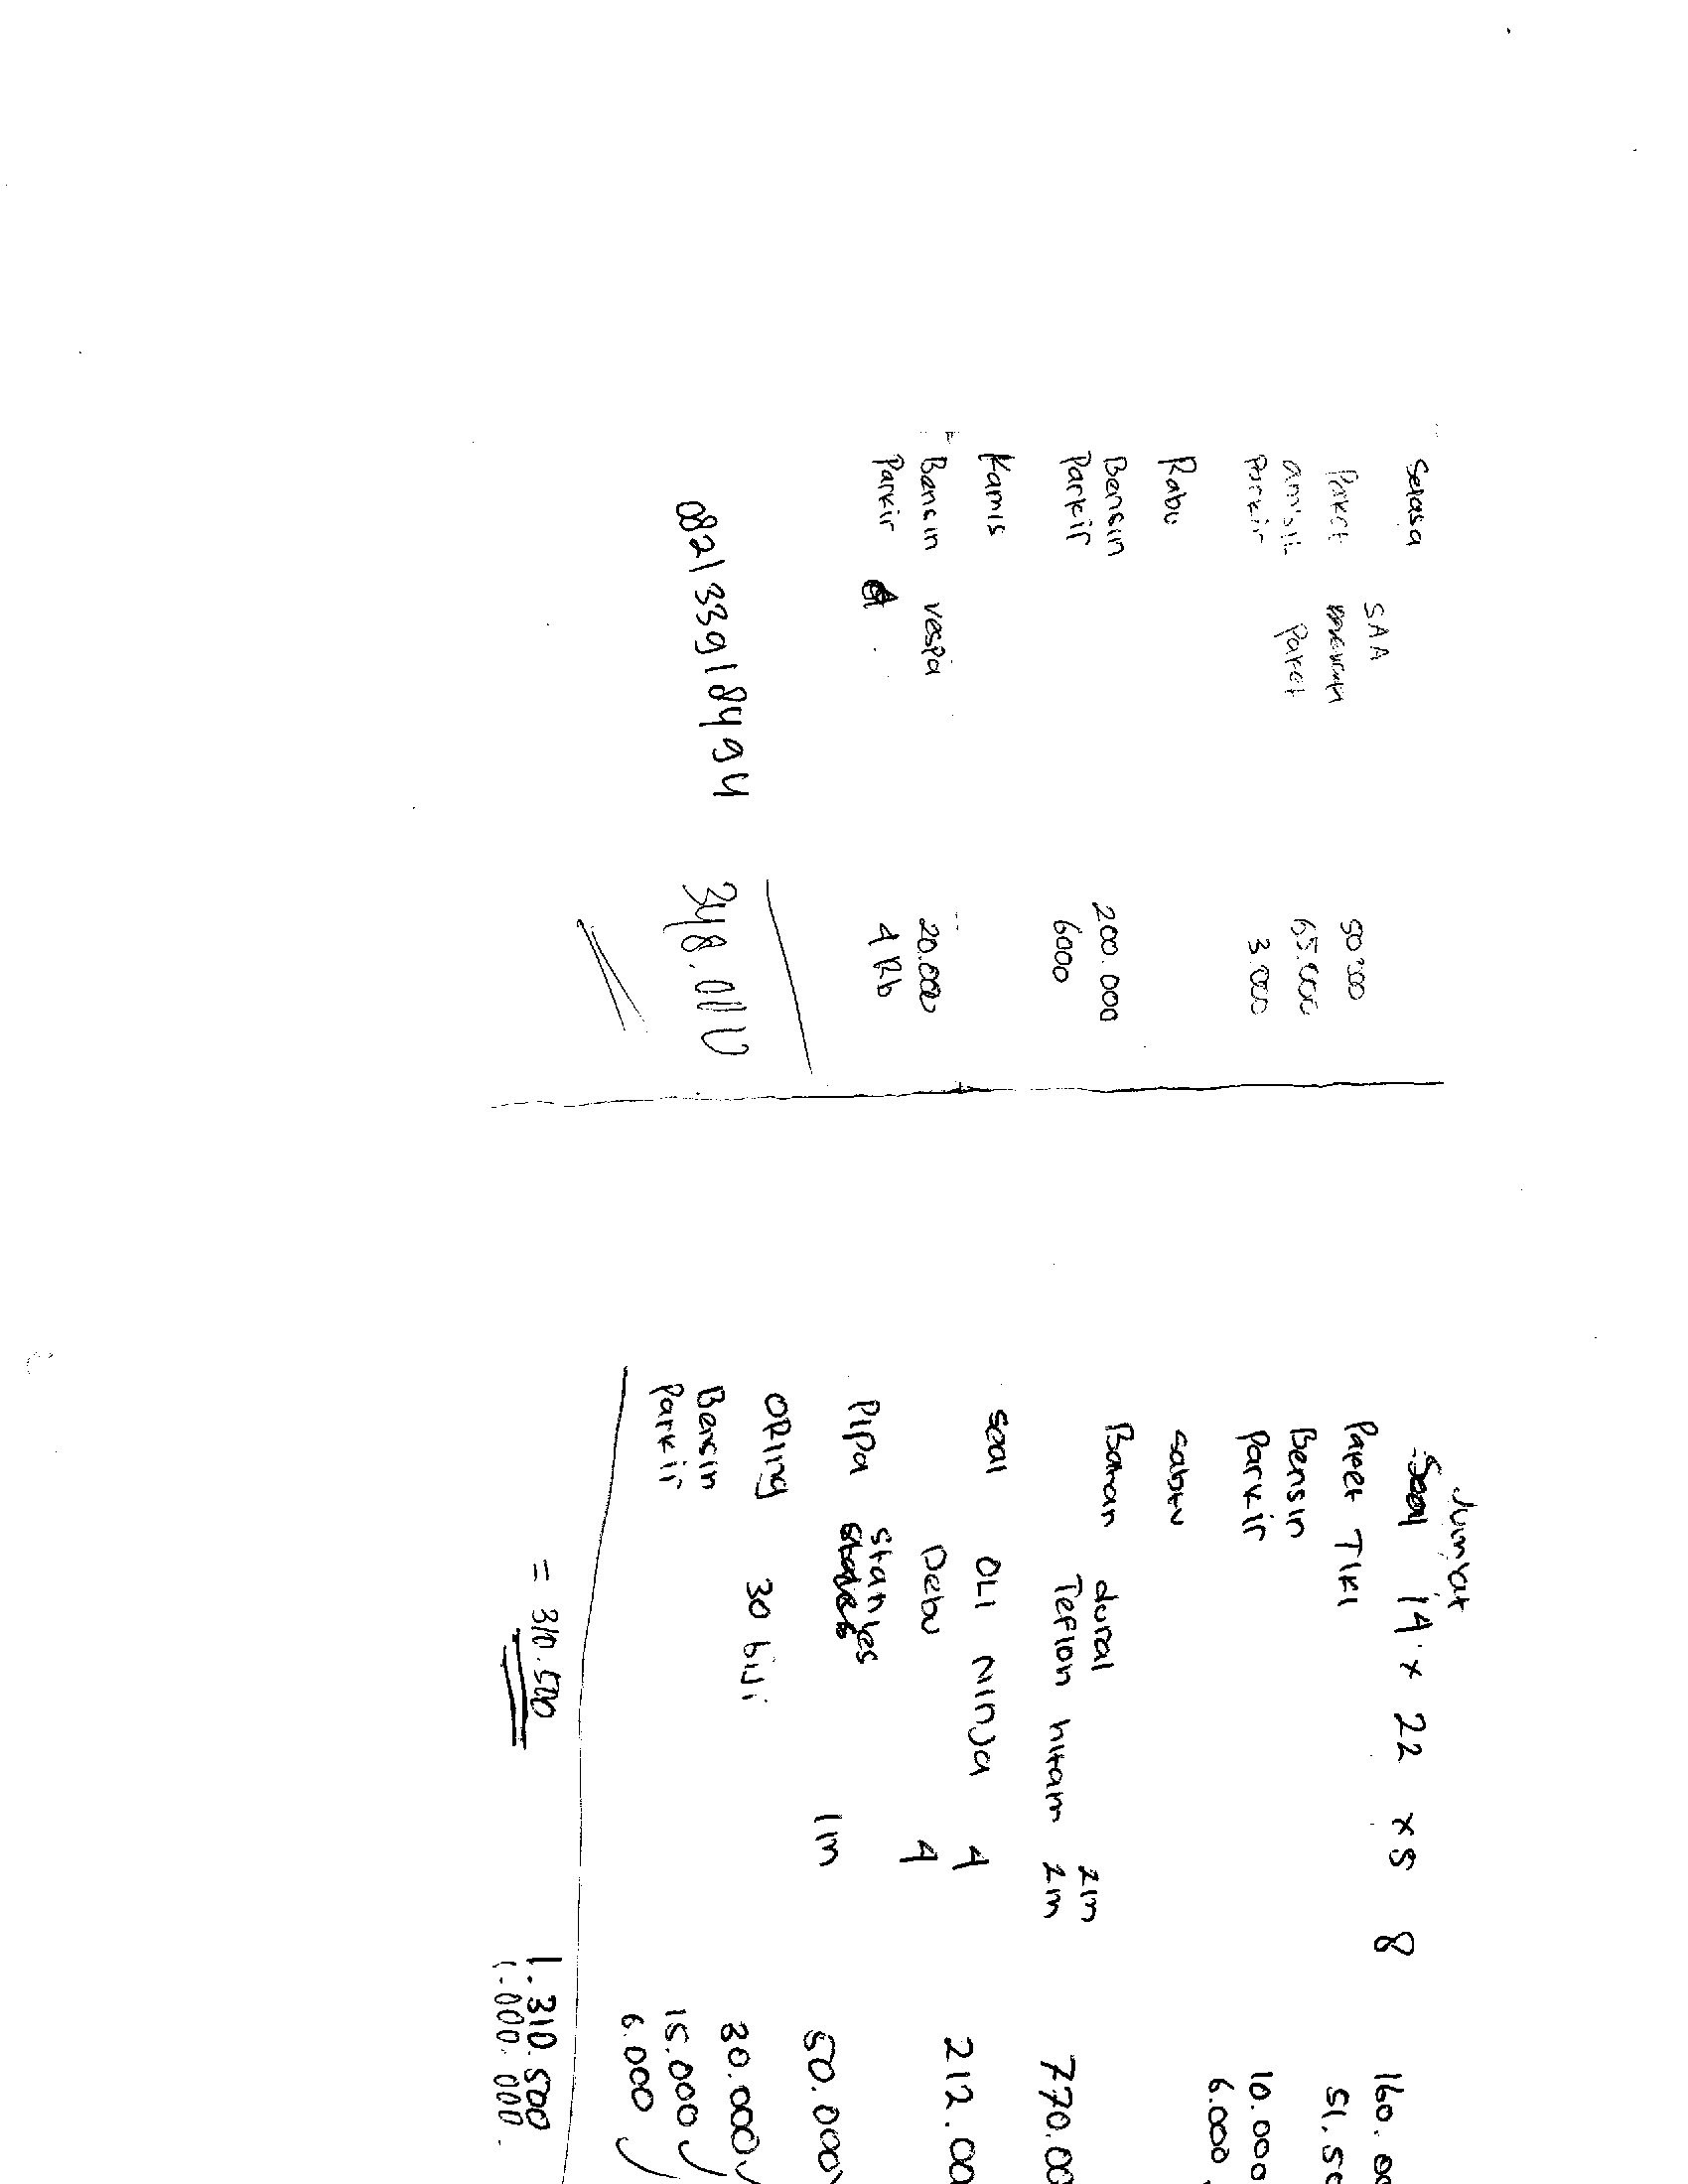 Selasa
SAA
Paket
50.000
ambil Paket 65.000
Parkir 3.000
Rabu
Bensin 200.000
Parkir 6000
Kamis
Bensin vespa 20.000
Parkir 4 Rb
082133918494
348.000
Jum'at
Seal 14 x 22 x 5 8 160.00
Paket TIKI 51.50
Bensin 10.000
Parkir 6.000
sabtu
Bahan dural 2m
Teflon hitam 2m 770.00
seal OLI NINJA 4 212.00
Debu 4
Pipa stanles 1m 50.000
ORing 30 biji 30.000
Bensin 15.000
Parkir 6.000
1.310.500
= 310.500 1.000.000.